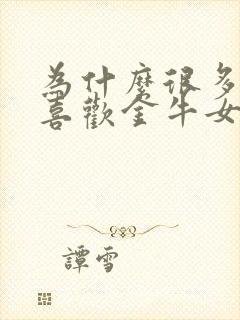 為什麼很多
喜歡金牛女
譚雪